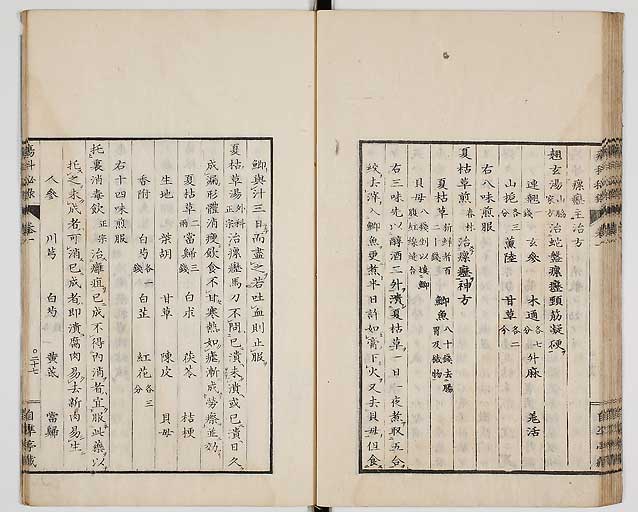 瘰癧主治方
翹玄湯 山脇家方 治蛇盤瘰癧頸筋凝硬
連翹 玄參 木通 各七 升麻 羌活
山梔 各三分 薰陸 甘草 各二分
右八味煎服
夏枯草煎 春林 治瘰癧神方
夏枯草 新鮮者百二十錢 鯽魚 八十錢去腸胃及穢物
貝母 八錢 鯽
右三味先以醇酒二升漬夏枯草一日一夜煮取五合
絞去滓入鯽魚更煮半日許如膏下火又去貝母但食
鯽與汁三日而盡之若吐血則止服
夏枯草湯 外科正宗 治瘰癧馬刀不問已潰未潰或已潰日久
成漏形體消瘦飲食不甘寒熱如瘧漸成勞瘵並効
夏枯草 二兩 當歸 三錢 白朮 茯苓 桔梗
生地 柴胡 甘草 陳皮 貝母
香附 白芍 各一錢 白芷 紅花 各三分
右十四味煎服
托裏消毒飲 正宗 治癰疽已成不得內消者宜服此藥以
托之未成者可消已成者即潰腐肉易去新肉易生
人參 川芎 白芍 黃芪 當歸
瘍科秘錄 卷一 〇二十七 自準亭藏